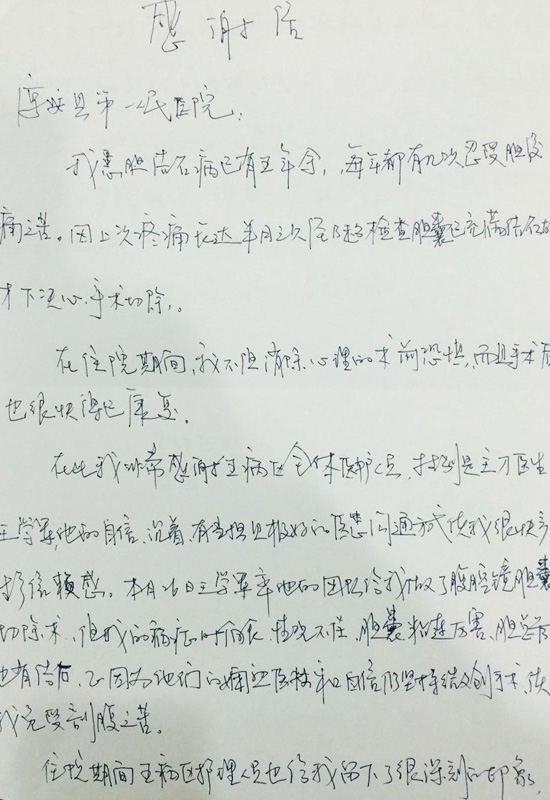 感谢信
县第一人民医院：
我患胆结石病已有五年余，每年都有几次忍受胆绞
痛之苦。因上次疼痛长达半月之久经B超检查胆囊已充满结石故
才下决心手术切除。
在住院期间，我不但消除心理的术前恐惧，而且手术后
也很快得已康复。
在此我非常感谢五病区全体医护人员，特别是主刀医生
王学军，他的自信、沉着、有当担且极好的医患沟通方式使我很快产
信赖感。本月26日王学军率他的团队给我做了腹腔镜胆囊
切除术，但我的病症时间长，情况不佳，胆囊粘连厉害，胆总管
也有结石，正因为他们的娴熟医技和自信仍坚持微创手术，使
我免受剖腹之苦。
住院期间五病区护理人员也给我留下了很深刻的印象，